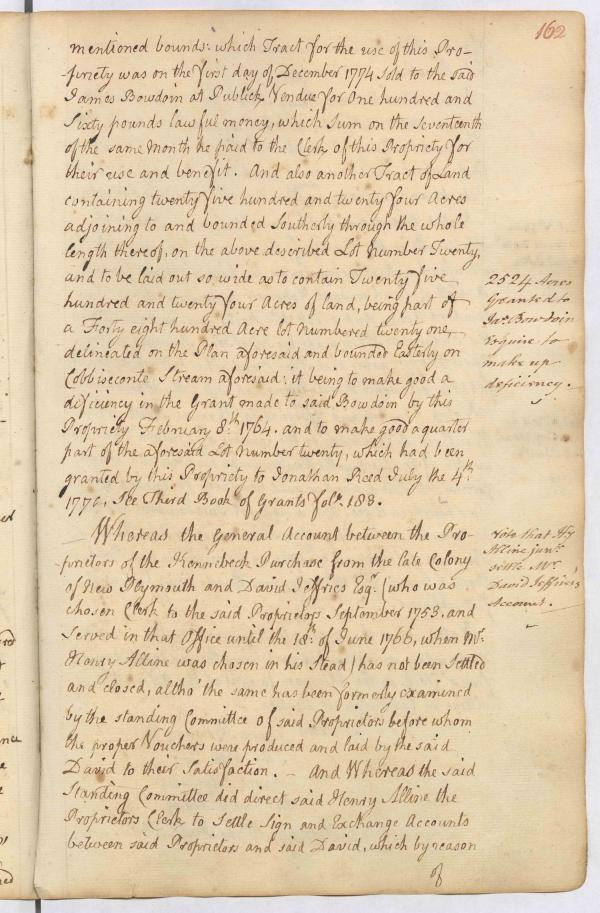 162
mentioned bounds: which Tract for the use of this Pro-
-priety was on the first day of December 1774 sold to the said
James Bowdoin at Publick Vendue for One hundred and
Sixty pounds lawful money, which Sum on the seventeenth
of the same Month he paid to the Clerk of this Propriety for
their use and benefit. And also another Tract of Land
containing twenty five hundred and twenty four Acres
adjoining to and bounded Southerly through the whole
length thereof, on the above described Lot Number Twenty,
and to be laid out so wide as to contain Twenty five
hundred and twenty four Acres of land, being part of
a Forty eight hundred Acre lot numbered twenty one,
delineated on the Plan aforesaid and bounded Easterly on
Cobbiseconte Stream aforesaid; it being to make good a
dificiency in the Grant made to said Bowdoin by this
Propriety February 8th. 1764. and to make good a quarter
part of the aforesaid Lot Number twenty, which had been
granted by this Propriety to Jonathan Reed July the 4th.
See Third Book of Grants folo. 188.
2524 Acres
Granted to
Jas. Bowdoin
Esquire to
make up
deficiency.
— Whereas the General Account between the Pro-
-prietors of the Kennebeck Purchase from the late Colony
of New Plymouth and David Jeffries Esqr. (who was
chosen Clerk to the said Proprietors September 1753. and
Served in that Office until the 18th. of June 1766, when Mr.
Henry Alline was chosen in his Stead) has not been Settled
and closed, altho' the same has been formerly examined
by the standing Committee of said Proprietors before whom
the proper Vouchers were produced and laid by the said
David to their Satisfaction. — And Whereas the said
Standing Committee did direct said Henry Alline the
Proprietors Clerk to Settle Sign and Exchange Accounts
between said Proprietors and said David, which by reason
of
Vote that Hy
Alline junr.
settle Mr.
David Jeffries's
Account.